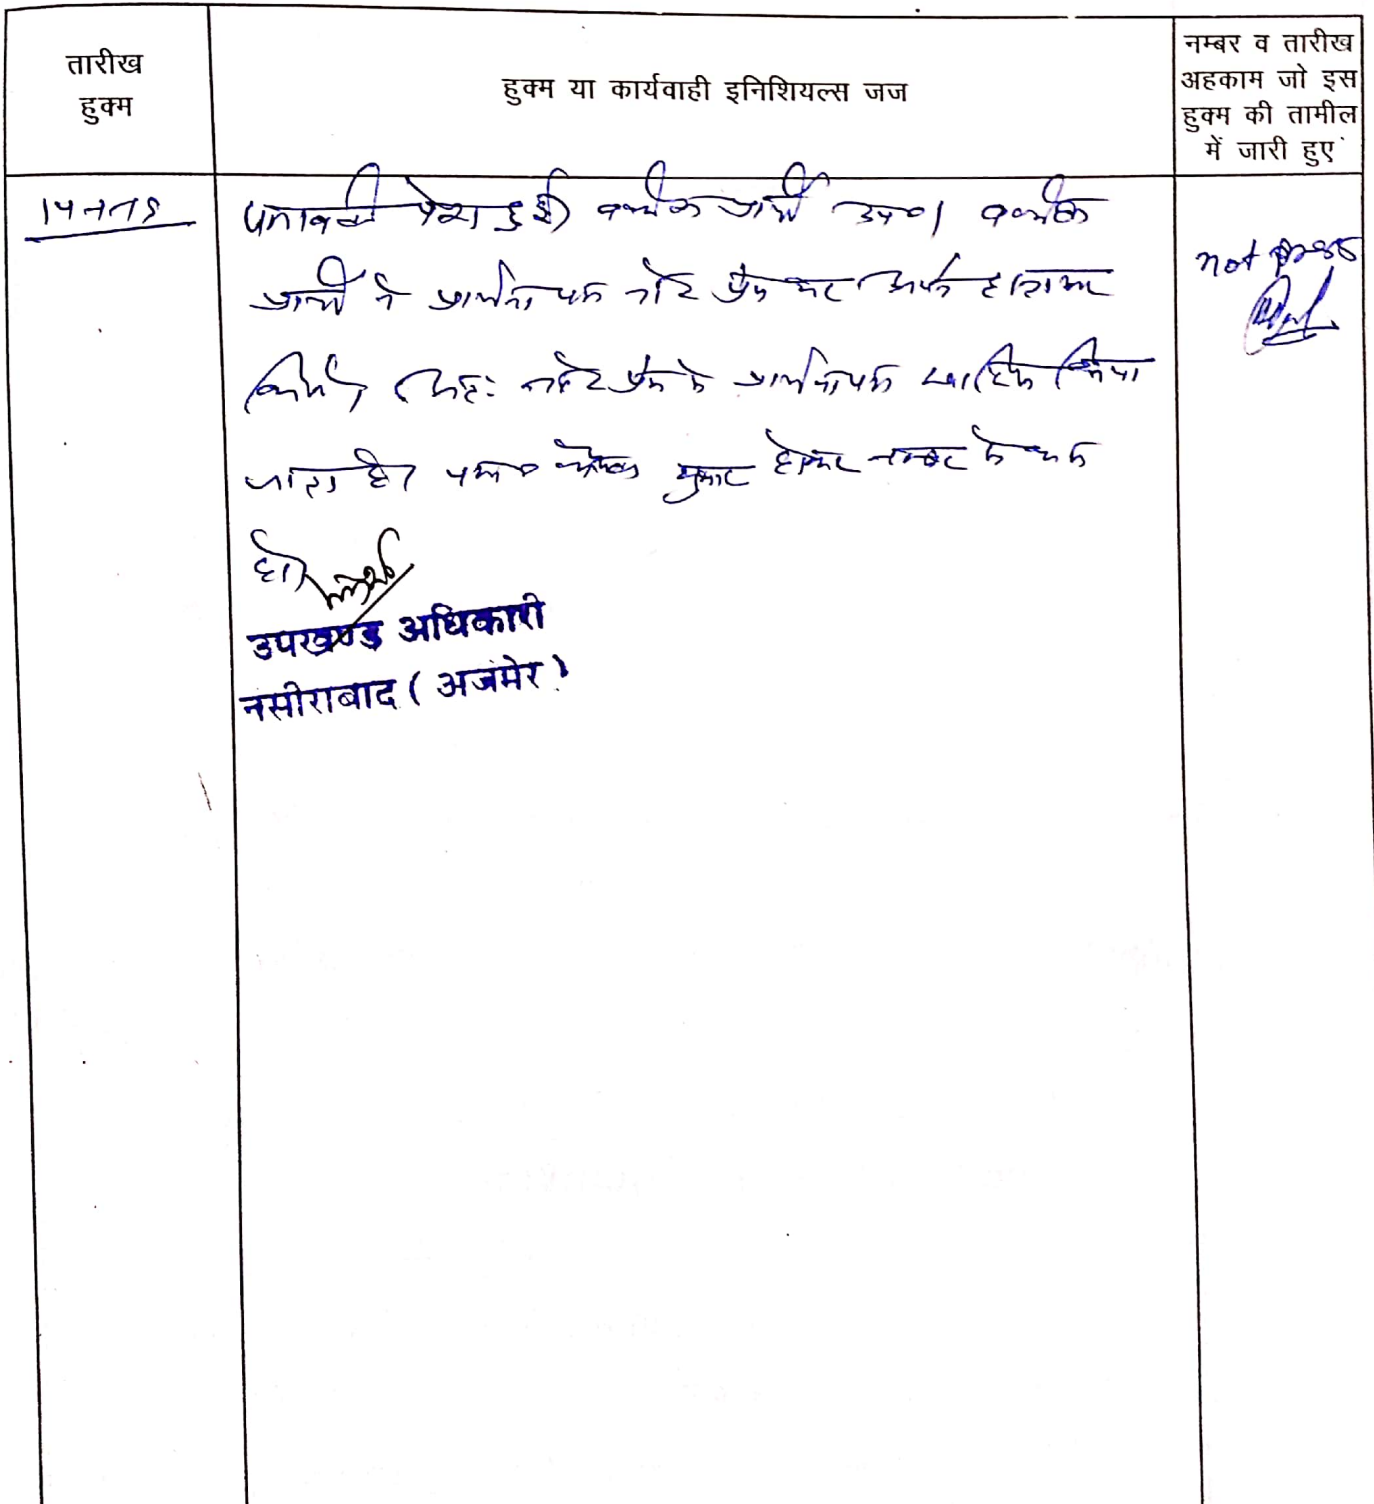 तारीख
हुक्म
हुक्म या कार्यवाही इनिशियल्स जज
नम्बर व तारीख
अहकाम जो इस
हुक्म की तामील
में जारी हुए
पत्रावली पेश हुई। वकील प्रार्थी उप०। वकील
प्रार्थी ने प्रार्थना पत्र नोट प्रेस कर
किये। अतः नोट प्रेस में प्रार्थना पत्र खारिज किया
जाता है। फैसल शुमार होकर नम्बर से कम
हो।
not press
उपखण्ड अधिकारी
नसीराबाद ( अजमेर )